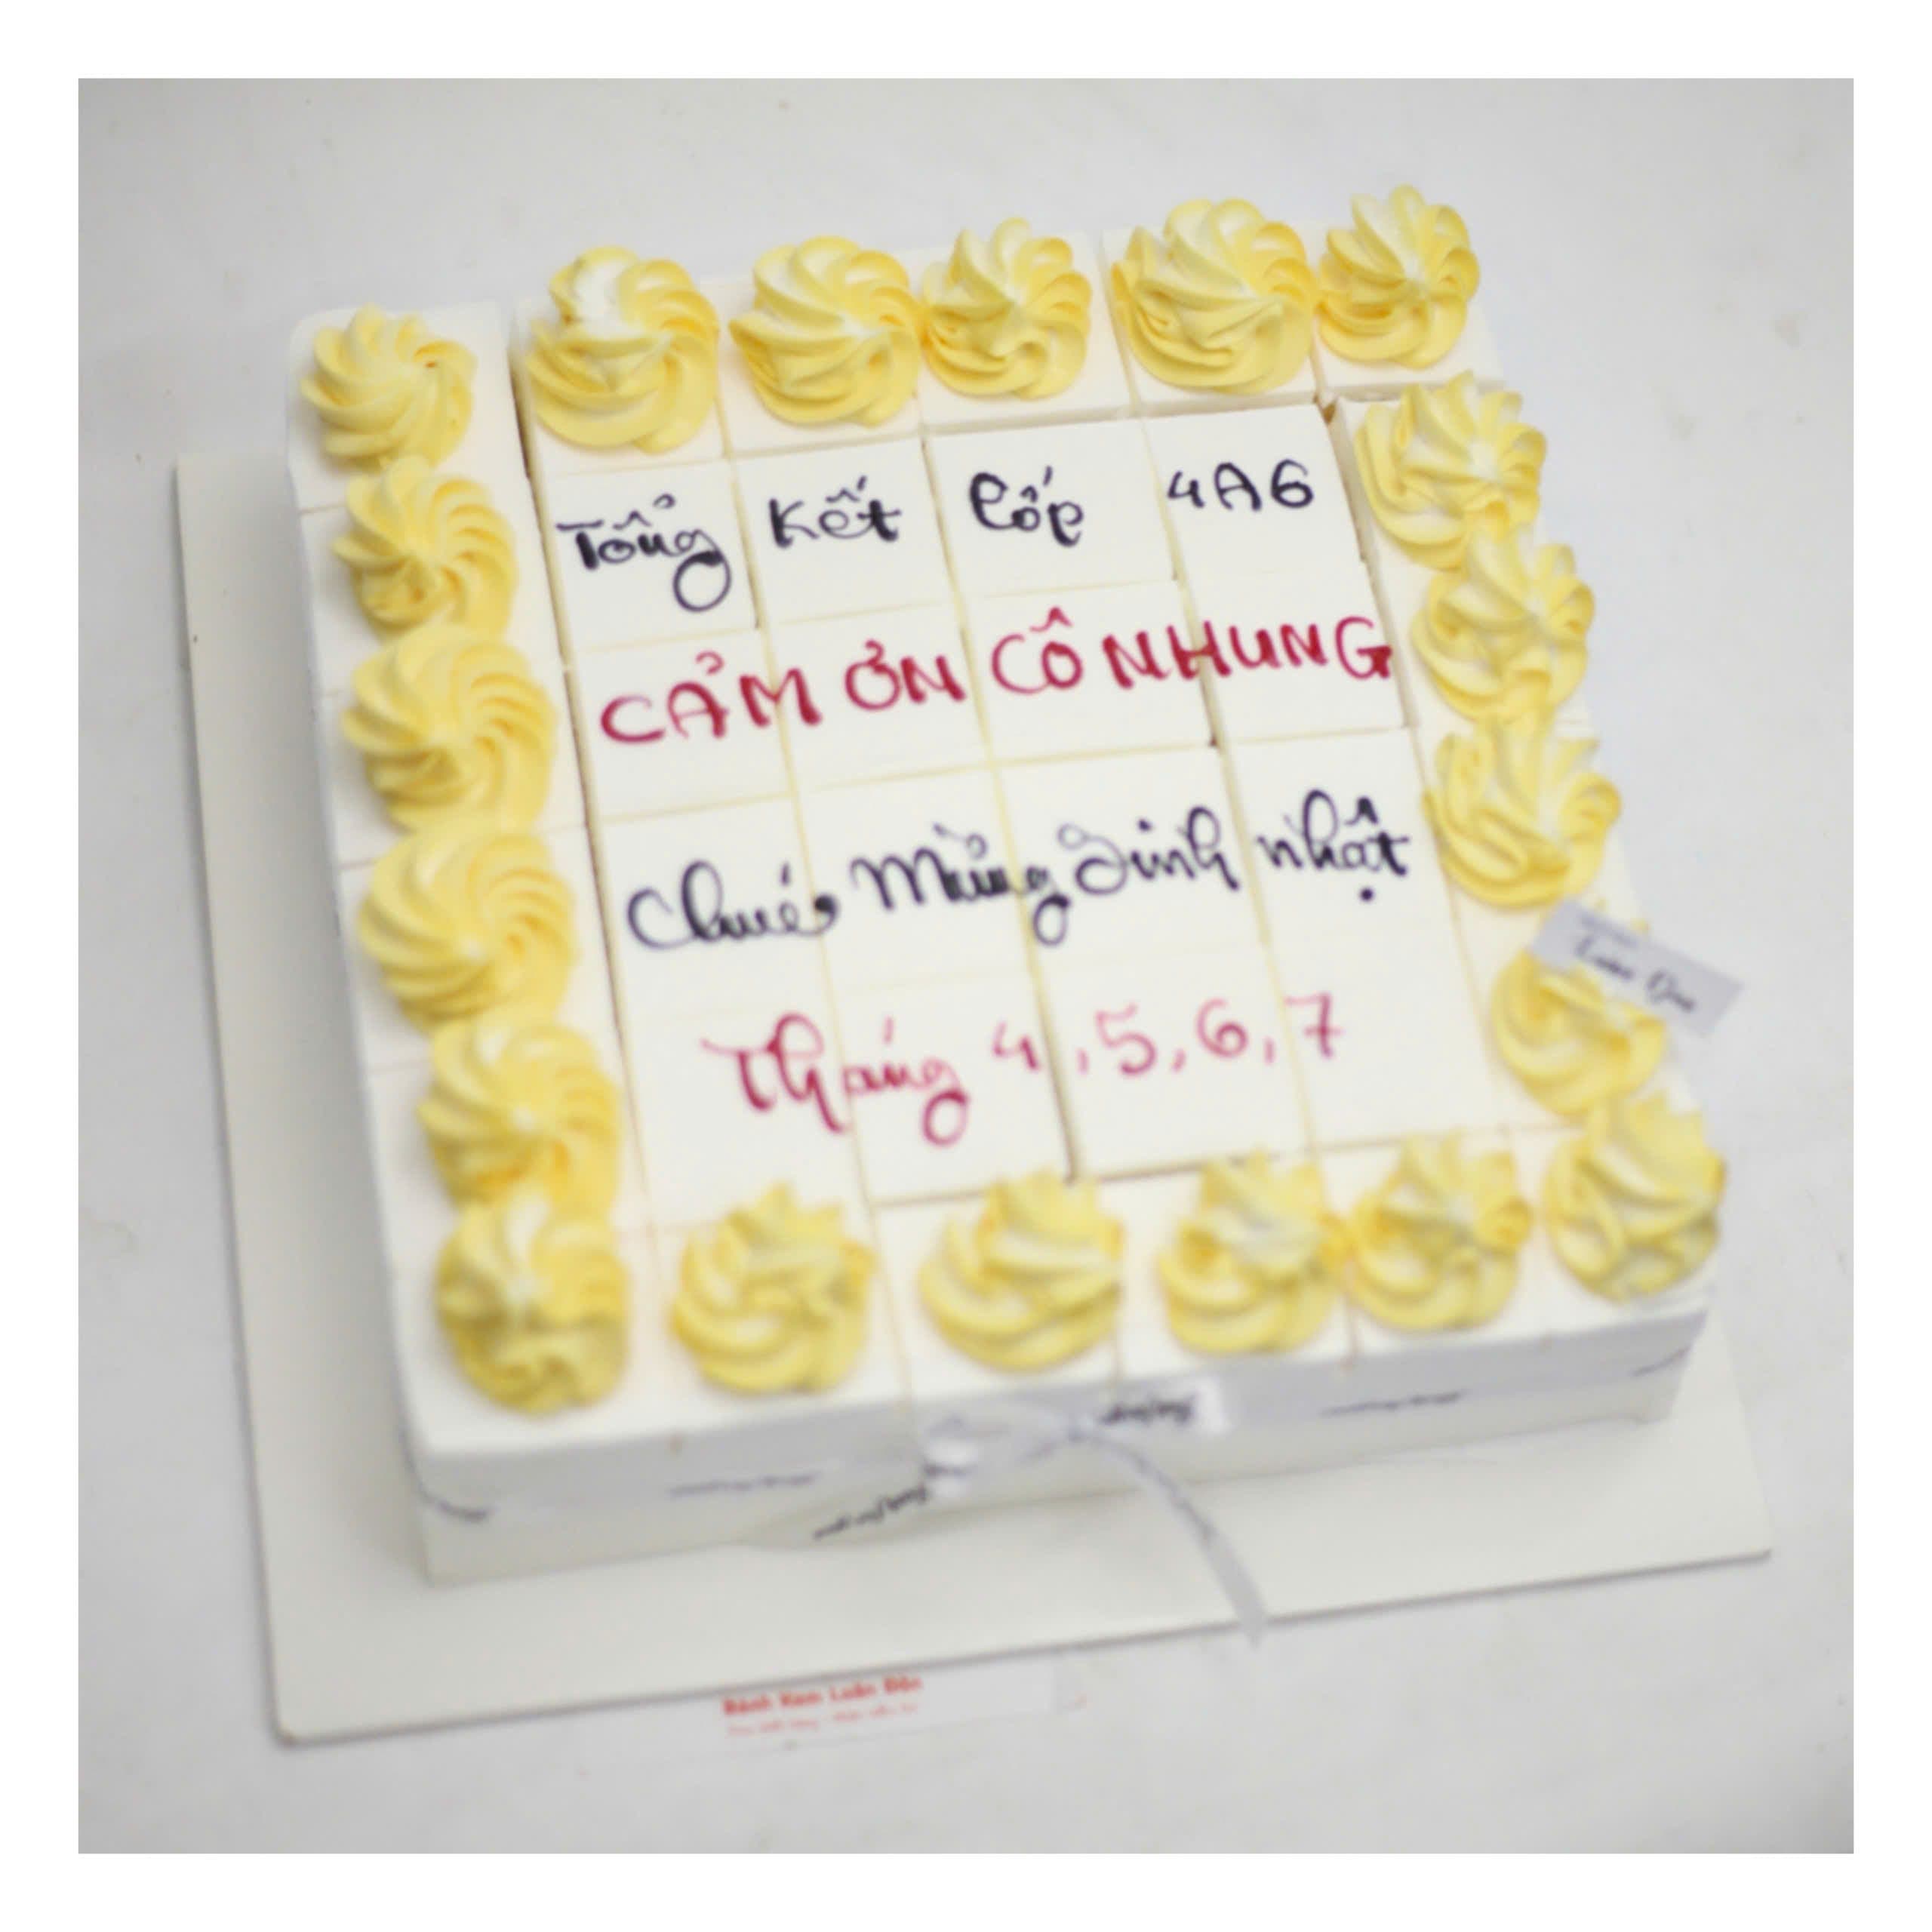 Tổng kết lớp 4A6
CẢM ƠN CÔ NHUNG
Chúc Mừng Sinh nhật
Tháng 4, 5, 6, 7
Bánh Kem